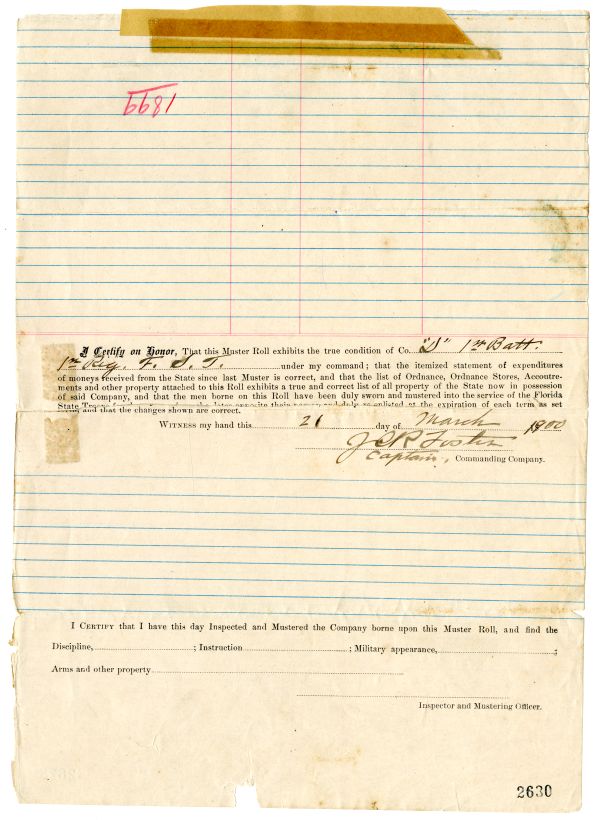 1899
I Certify on Honor, That this Muster Roll exhibits the true condition of Co. "D" 1st Batt.
1st Reg. F. S. T. under my command; that the itemized statement of expenditures
of moneys received from the State since last Muster is correct, and that the list of Ordnance, Ordnance Stores, Accoutre-
ments and other property attached to this Roll exhibits a true and correct list of all property of the State now in possession
of said Company, and that the men borne on this Roll have been duly sworn and mustered into the service of the Florida
State opposite their names and duly re-enlisted at the expiration of each term as set
and that the changes shown are correct.
WITNESS my hand this 21 day of March 1900
J C R Foster
Captain, Commanding Company.
I CERTIFY that I have this day Inspected and Mustered the Company borne upon this Muster Roll, and find the
Discipline, ; Instruction ; Military appearance, ;
Arms and other property
Inspector and Mustering Officer.
2630